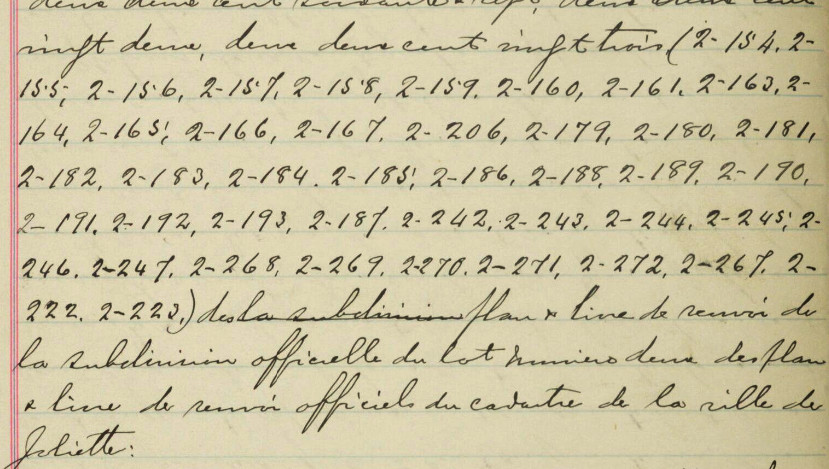 deux deux cent soixante & sept, deux deux cent
vingt deux, deux deux cent vingt trois, (2-154, 2-
155, 2-156, 2-157, 2-158, 2-159. 2-160, 2-161. 2-163, 2-
164, 2-165, 2-166, 2-167. 2-206, 2-179, 2-180, 2-181,
2-182, 2-183, 2-184. 2-185, 2-186, 2-188, 2-189, 2-190,
2-191. 2-192, 2-193, 2-187. 2-242, 2-243. 2-244. 2-245, 2-
246. 2-247. 2-268, 2-269. 2-270. 2-271, 2-272, 2-267. 2-
222. 2-223,) des la subdivision plan & livre de renvoi de
la subdivision officielle du lot numero deux des plan
& livre de renvoi officiels du cadastre de la ville de
Joliette: